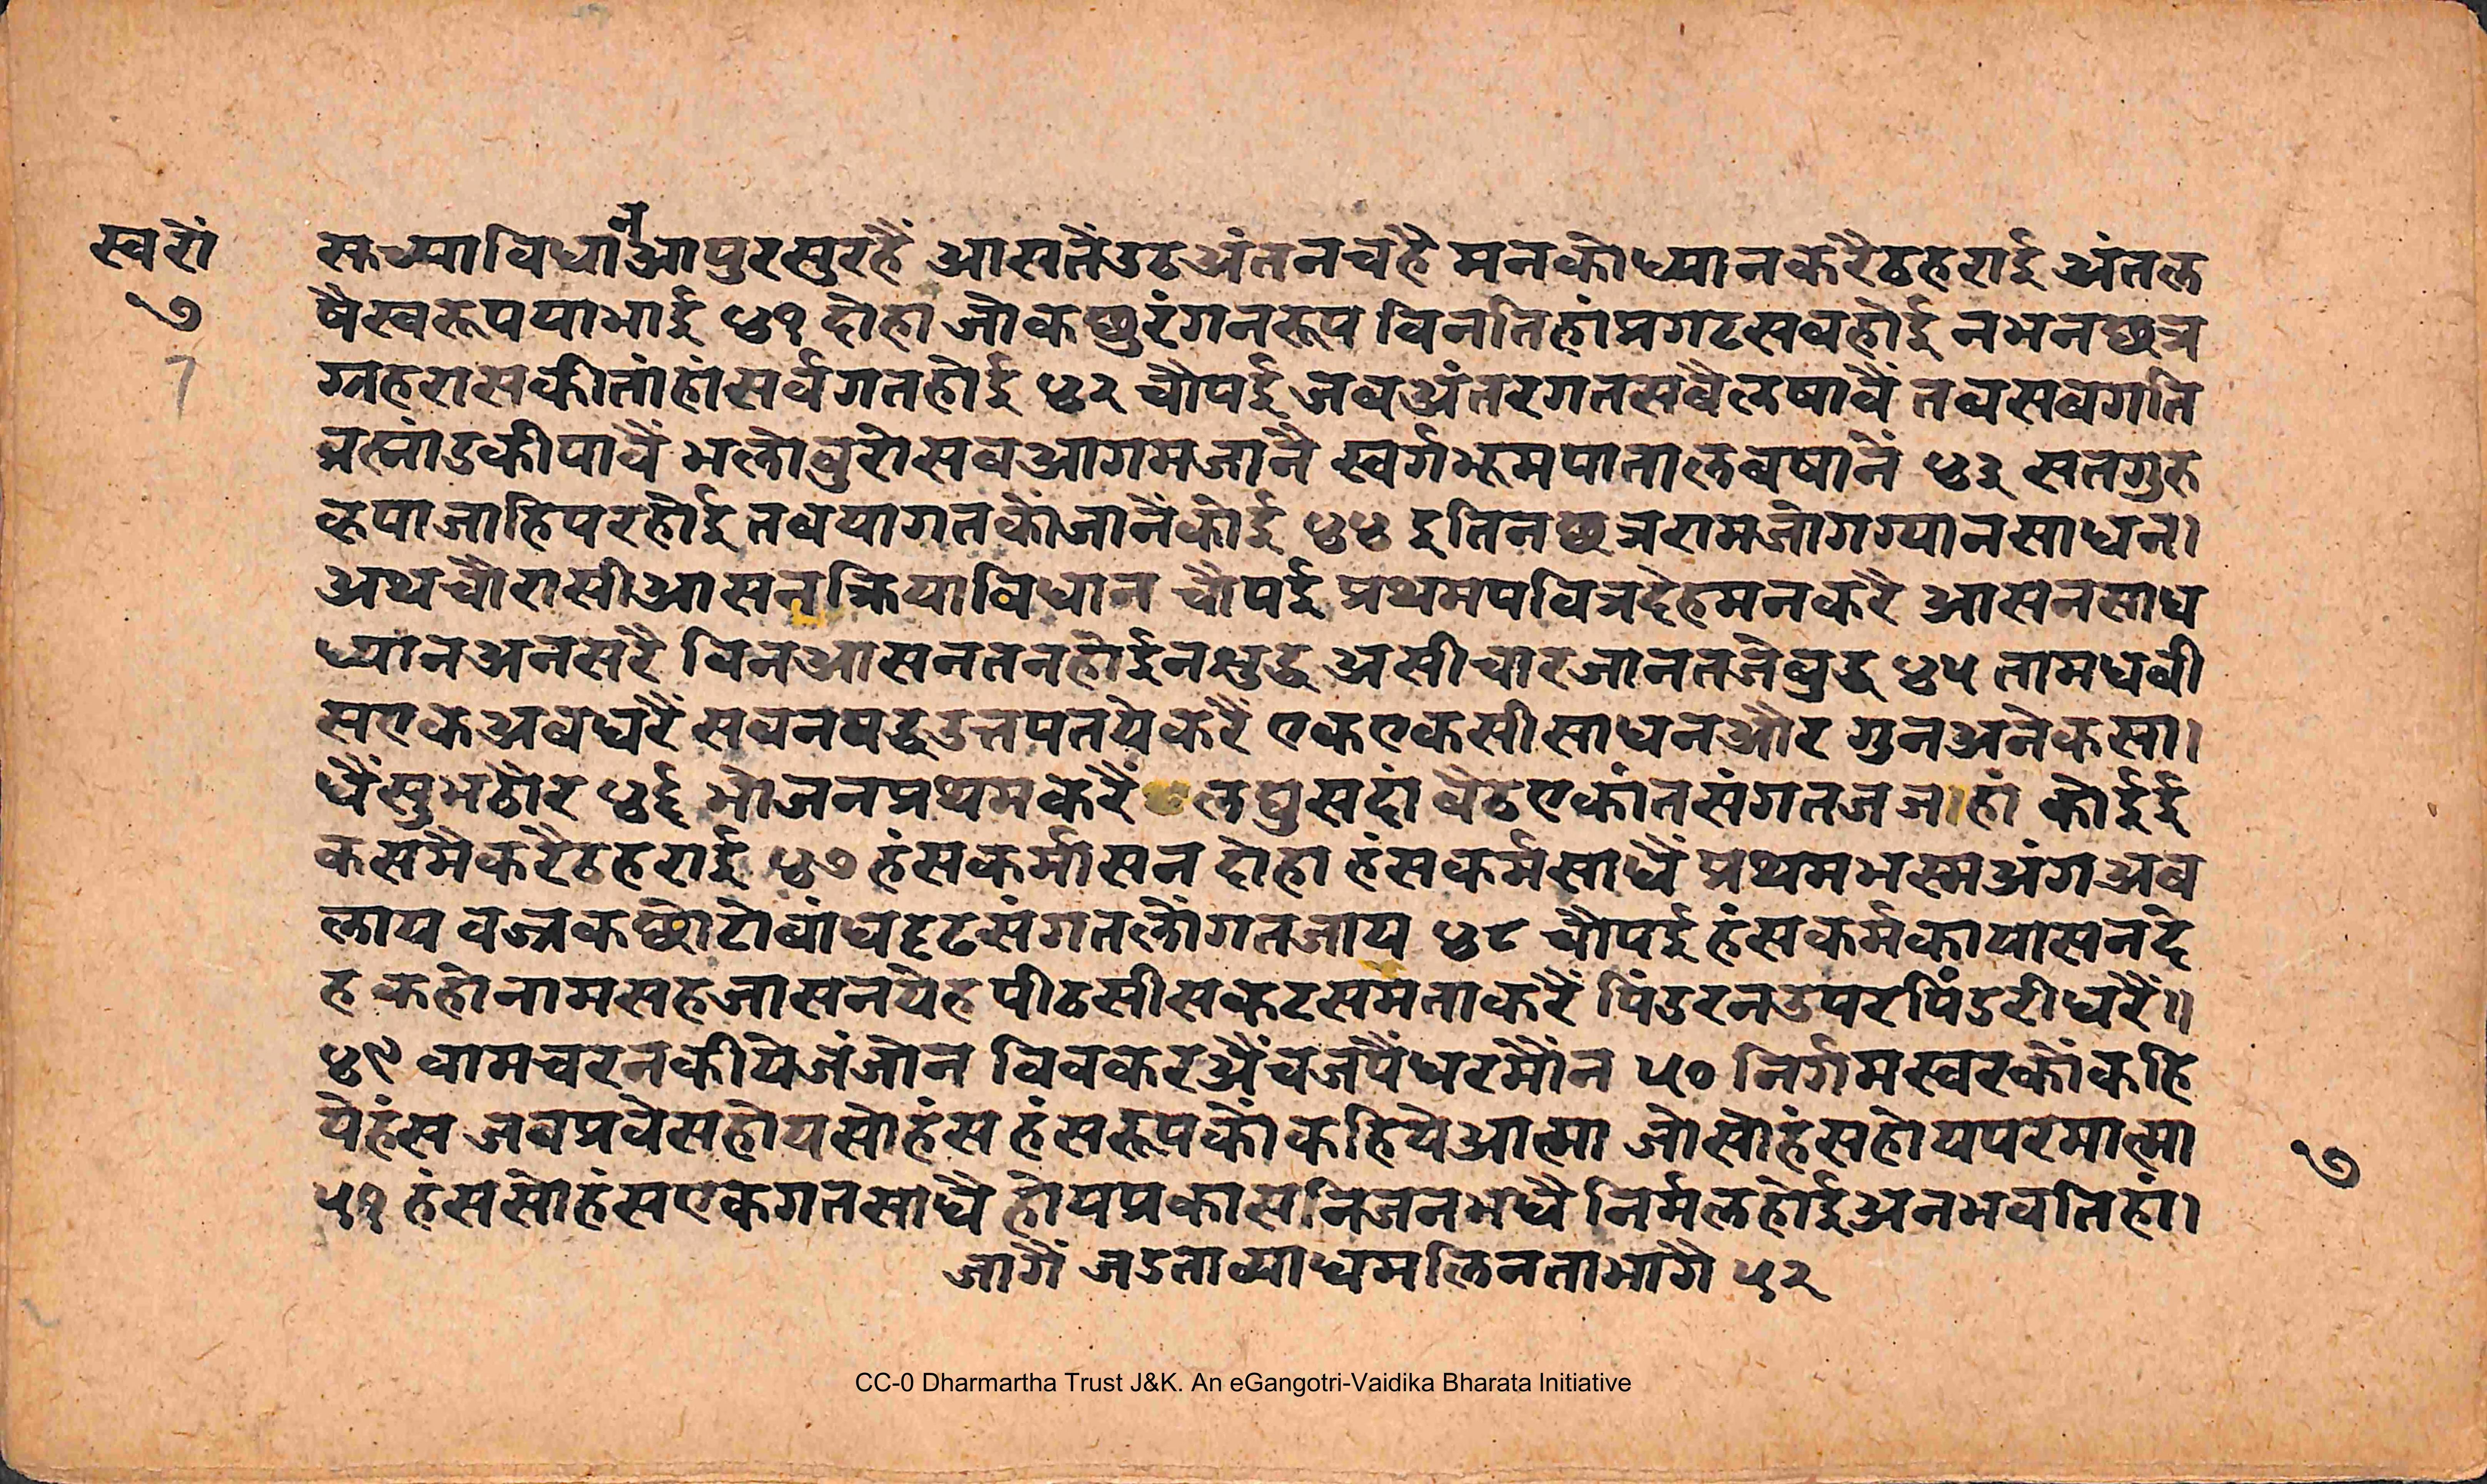 स्वरों
७
7
सध्याविधानआपुरसुरहैं आसतेंउठअंतनचहै मनकोध्यानकरैठहराई अंतल
षैस्वरूपयाभाई ४१ दोहा जोकछुरंगनरूप विनातिहांप्रगटसवहोई नभनछत्र
ग्नहरासकीतांहांसर्वगतहोई ४२ चौपई जवअंतरगतसवैलषावैं तवसवगति
व्रह्मांडकीपावैं भलोवुरोसवआगमजानै स्वर्गभूमपातालवषानै ४३ सतगुरु
कृपाजाहिपरहोई तवयागतकोंजानैंकोई ४४ इतिनछत्ररामजोगग्यानसाधन।
अथचौरासीआसनक्रियाविधान चौपई प्रथमपवित्रदेहमनकरै आसनसाध
ध्यानअनसरै विनआसनतनहोईनशुद्ध असीचारजानतजेवुद्ध ४५ तामधवी
सएकअवधरैं सवनषट्उत्तपतयेकरैं एकएकसीसाधनऔर गुनअनेकसा।
धैंसुभठौर ४६ भोजनप्रथमकरैं लघुसदां वेठएकांतसंगतजजाहां कोईई
कसमैकरैठहराई ४७ हंसकर्मासन दोहा हंसकर्मसाधैं प्रथमभस्मअंगअव
लाय वज्रकछोटोवांधदृढसंगतलोंगतजाय ४८ चौपई हंसकर्मकायासनदे
ह कहोनामसहजासनयेह पीठसीसकटसमताकरैं पिंडरनउपरपिंडरीधरैं॥
४९ वामचरनकीयेजंजोन विवकरअैंचजपैंधरमौंन ५० निर्गमस्वरकोंकहि
येहंस जवप्रवेसहोयसोहंस हंसरूपकोंकहियेआत्मा जोसोहंसहोयपरमात्मा
५१ हंससोहंसएकगतसाधै होयप्रकासनिजनभधै निर्मलहोईअनभवतिहां।
जागैं जडताव्याधमलिनताभागै ५२
७
CC-0 Dharmartha Trust J&K. An eGangotri-Vaidika Bharata Initiative